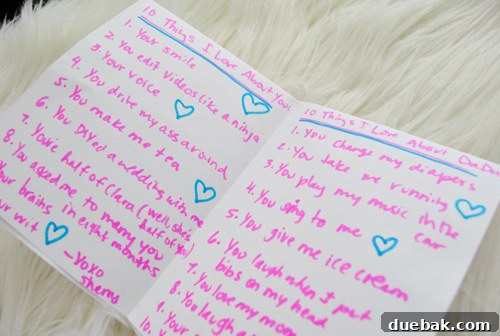 10 Things I Love About You:
1. Your smile
2. You edit videos like a ninja
3. Your voice
4. You drive my ass around
5. You make me tea
6. You DIYed a wedding with me
7. You're half of Clara (well, she's
half of you)
8. You asked me to marry you
in eight months
Your brains
ur wit
-xoxo
10 Things I Love About DaDa
1. You change my diapers
2. You take me running
3. You play my music in the
car
4. You sing to me
5. You give me ice cream
6. You laugh when I put
bibs on my head
7. You love my mom
8. You laugh
9. Your
10. Y
duebak.com